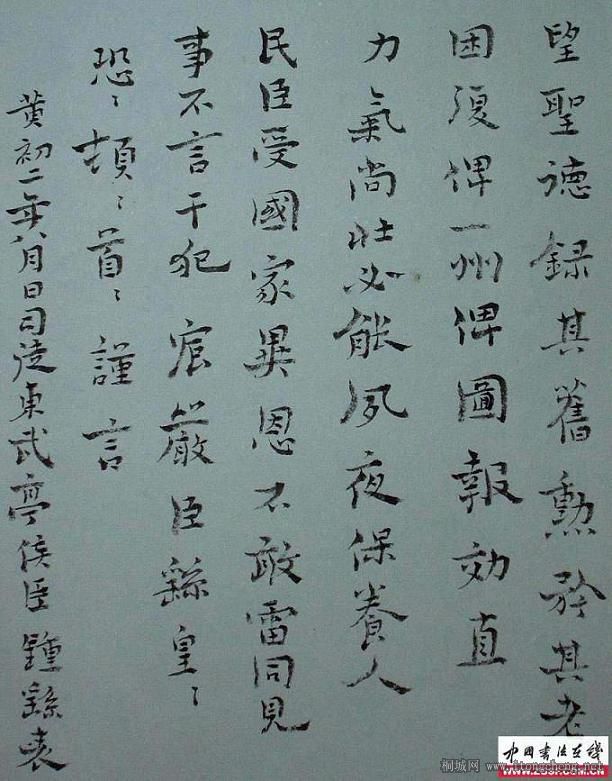 望聖德録其舊勳矜其老
困復俾一州俾圖報効直
力氣尚壯必能夙夜保養人
民臣受國家異恩不敢雷同見
事不言干犯宸嚴臣繇皇〻
恐〻頓〻首〻謹言
黃初二年八月日司徒東武亭侯臣鍾繇表
中国书法在线
桐城网